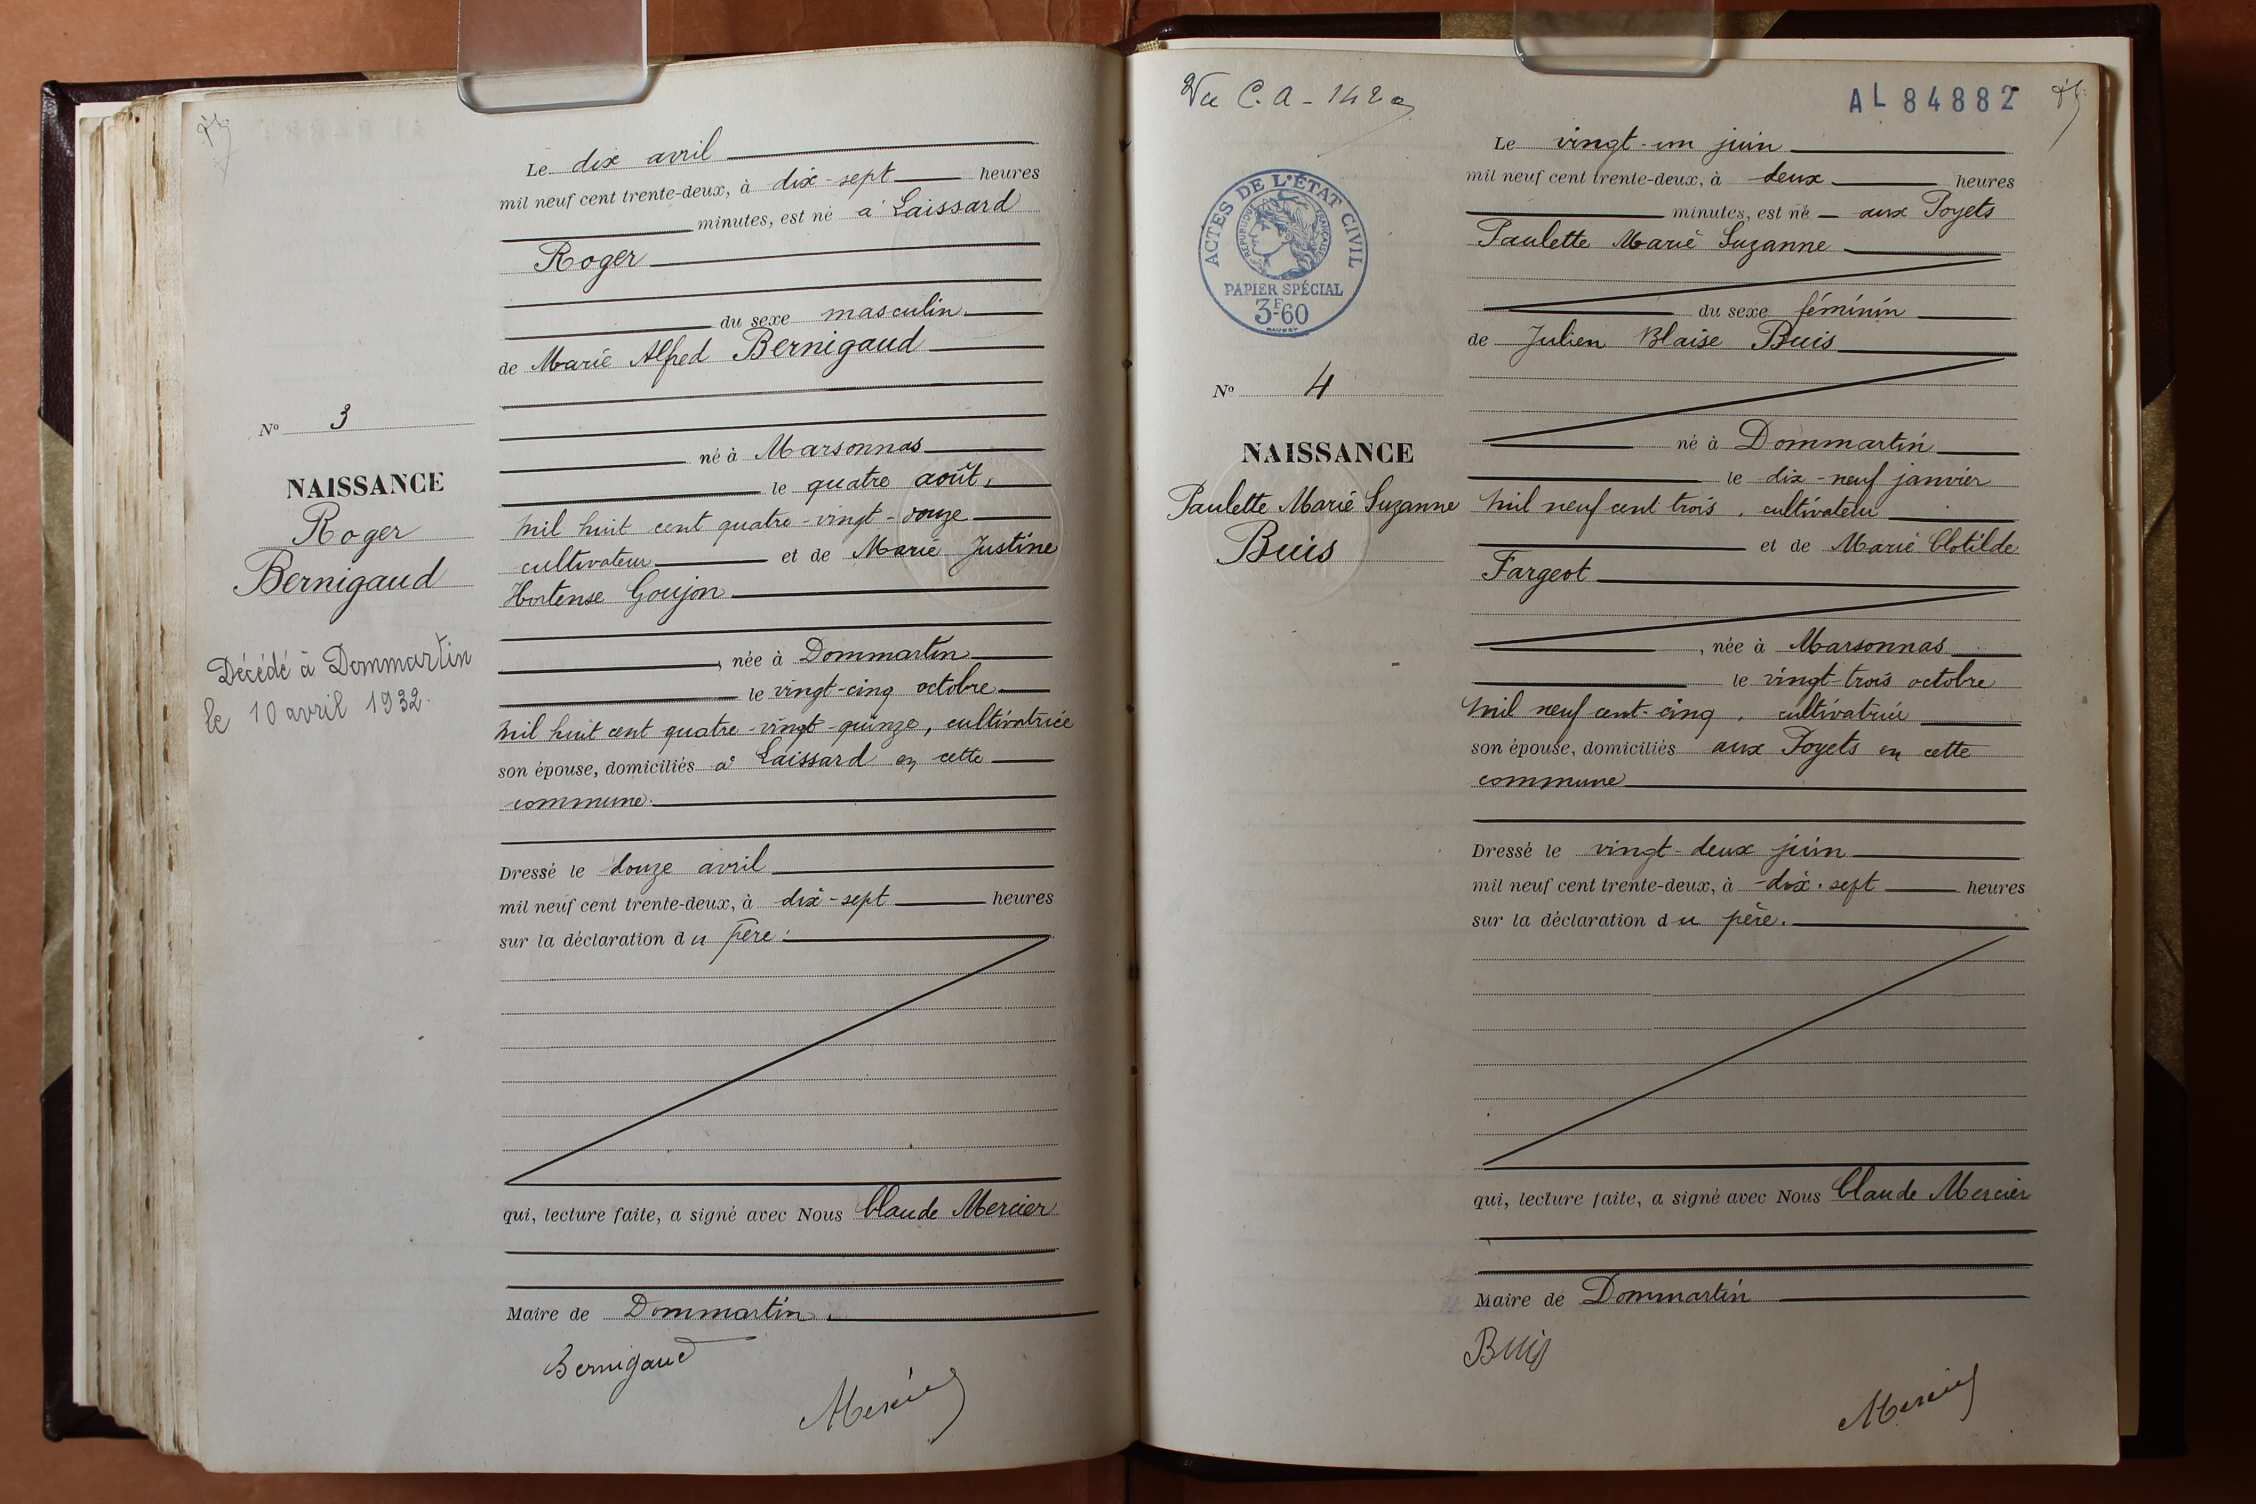 Le dix avril
mil neuf cent trente-deux, à dix-sept heures
minutes, est né à Laissard
Roger
du sexe masculin
de Marie Alfred Bernigaud
né à Marsonnas
le quatre août,
mil huit cent quatre-vingt-douze
cultivateur et de Marie Justine
Hortense Goujon
, née à Dommartin
le vingt-cinq octobre
mil huit cent quatre-vingt-quinze, cultivatrice
son épouse, domiciliés à Laissard en cette
commune.
Dressé le douze avril
mil neuf cent trente-deux, à dix-sept heures
sur la déclaration du père.
qui, lecture faite, a signé avec Nous Claude Mercier
Maire de Dommartin.
Bernigaud
Mercier
No 3
NAISSANCE
Roger
Bernigaud
Décédé à Dommartin
le 10 avril 1932.
Vu C. A - 142
AL 84882
ACTES DE L'ÉTAT CIVIL
RÉPUBLIQUE FRANÇAISE
PAPIER SPÉCIAL
3F60
No 4
NAISSANCE
Paulette Marie Suzanne
Buis
Le vingt-un juin
mil neuf cent trente-deux, à deux heures
minutes, est né aux Poyets
Paulette Marie Suzanne
du sexe féminin
de Julien Blaise Buis
né à Dommartin
le dix-neuf janvier
mil neuf cent trois, cultivateur
et de Marie Clotilde
Fargeot
, née à Marsonnas
le vingt-trois octobre
mil neuf cent-cinq, cultivatrice
son épouse, domiciliés aux Poyets en cette
commune
Dressé le vingt-deux juin
mil neuf cent trente-deux, à dix-sept heures
sur la déclaration du père.
qui, lecture faite, a signé avec Nous Claude Mercier
Maire de Dommartin
Buis
Mercier